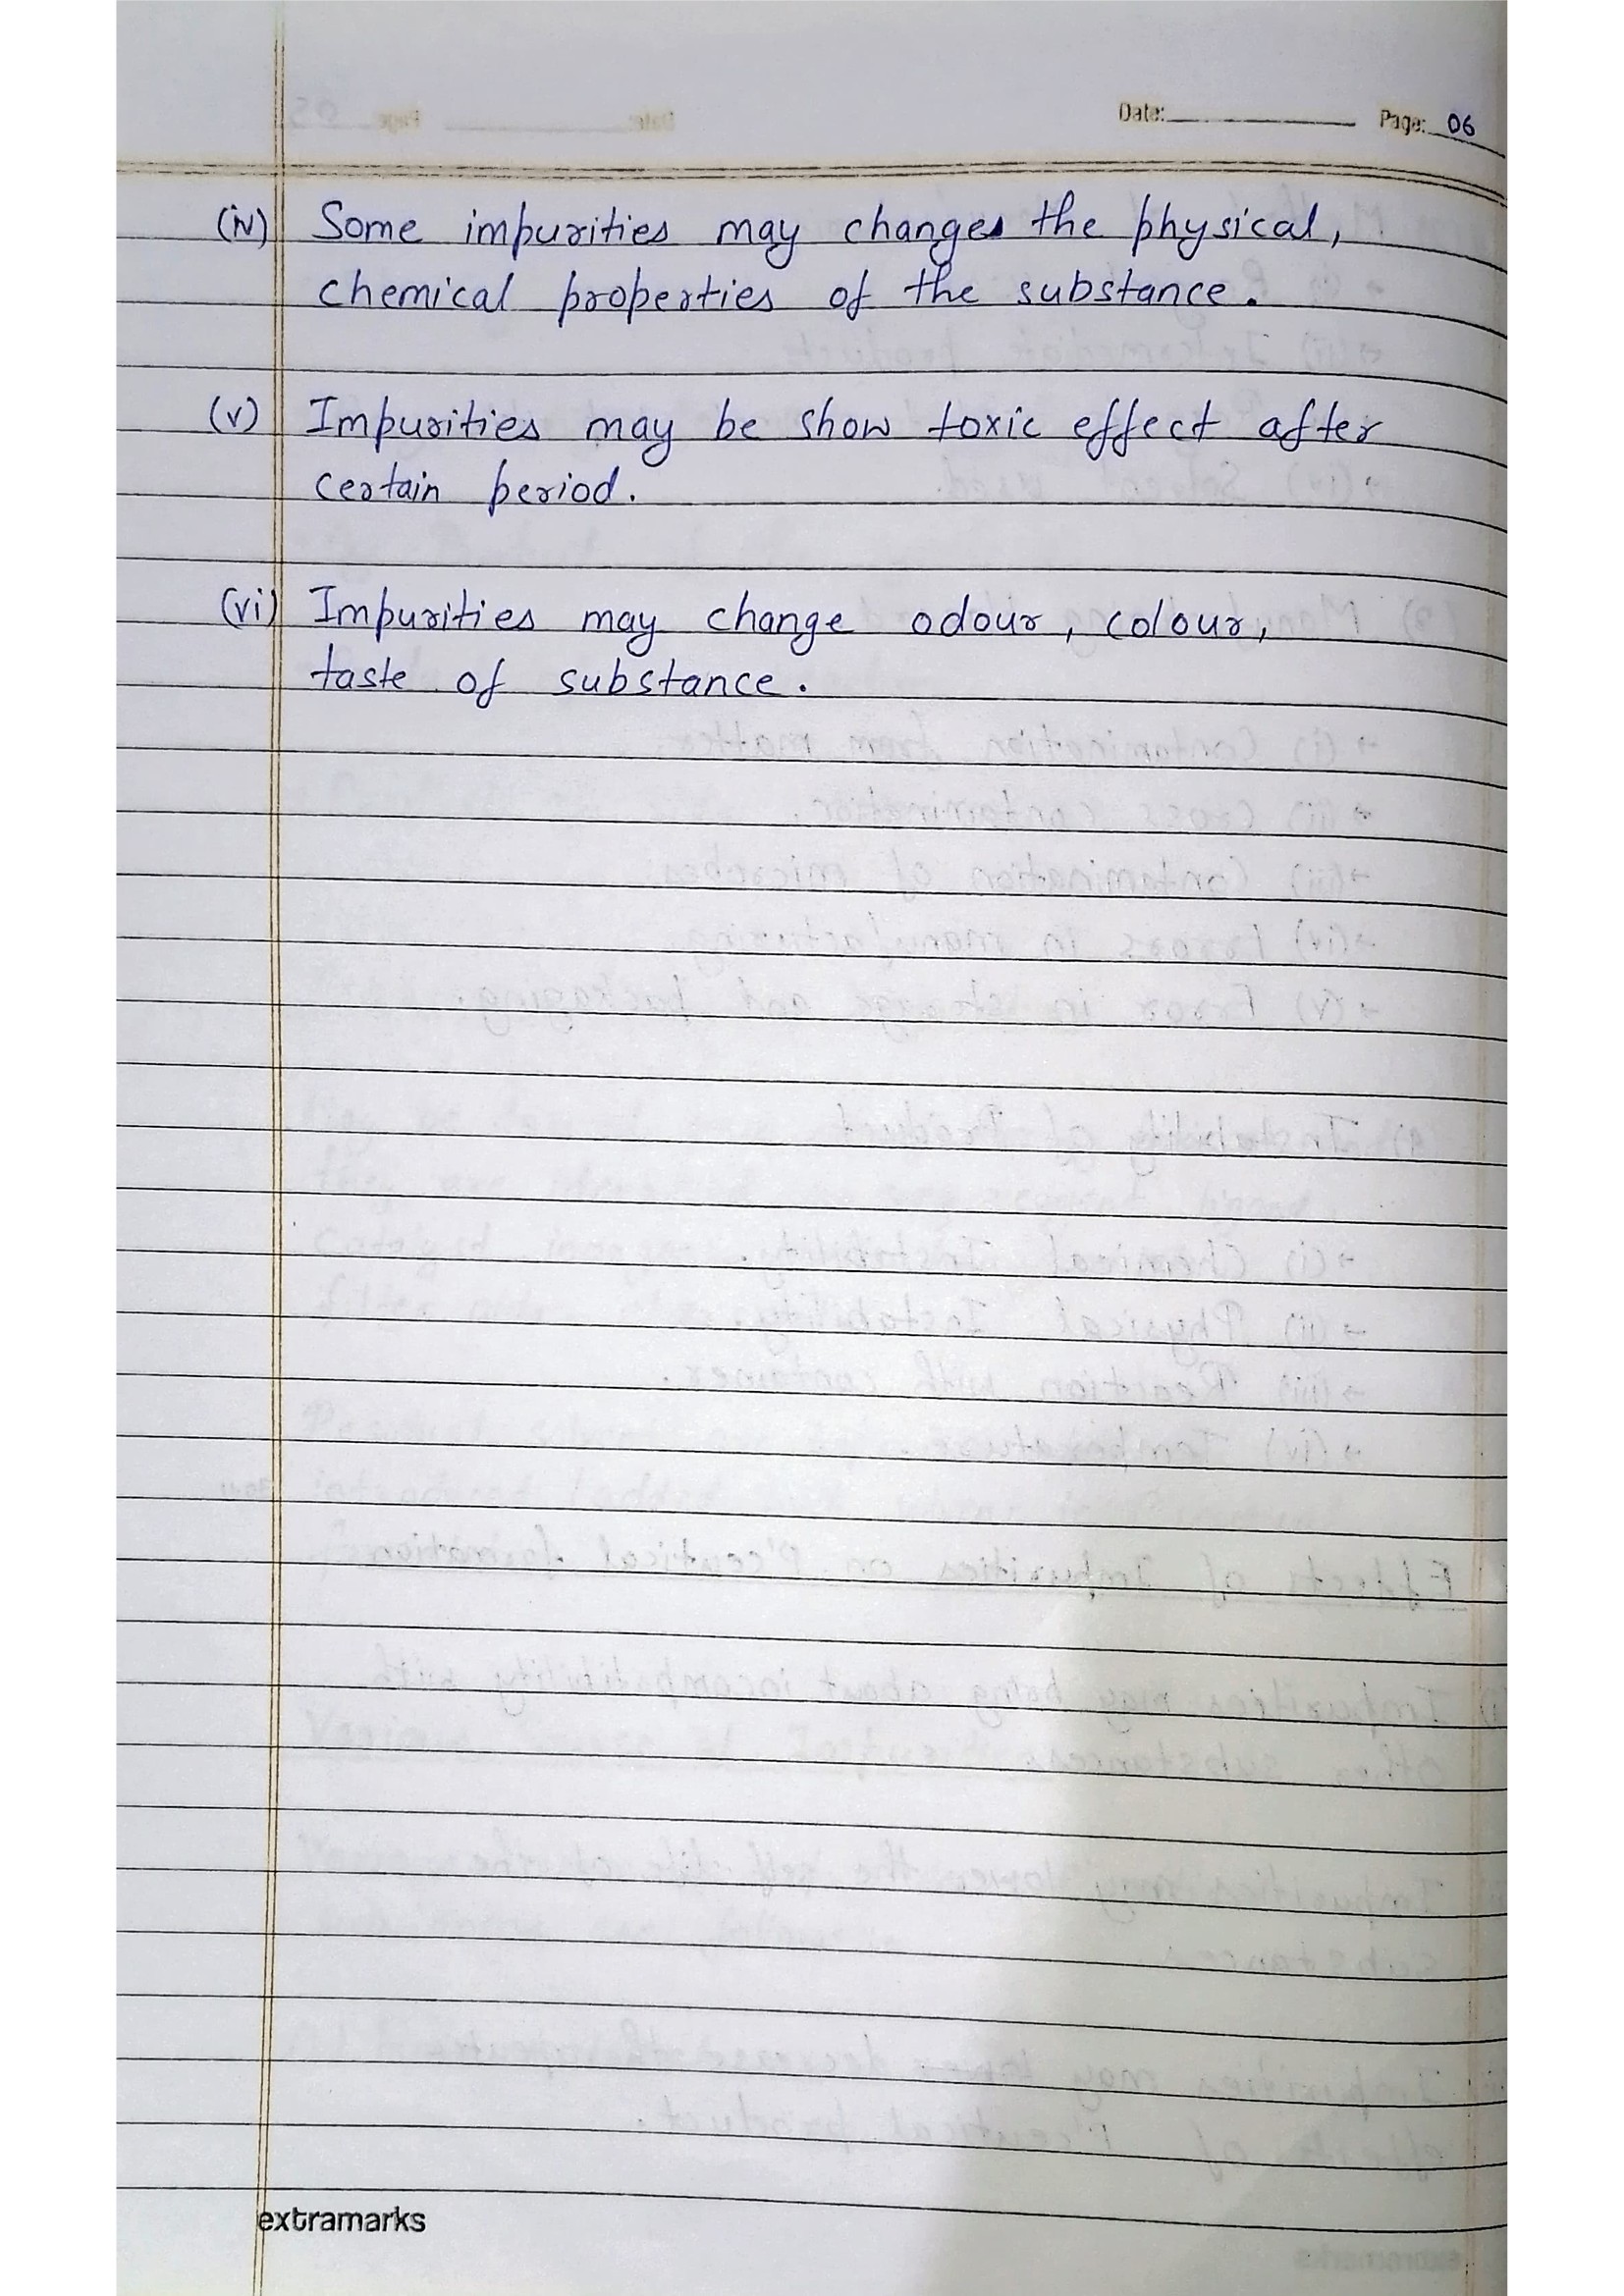 Date: Page: 06
(iv) Some impurities may changes the physical,
chemical properties of the substance.
(v) Impurities may be show toxic effect after
certain period.
(vi) Impurities may change odour, colour,
taste of substance.
extramarks